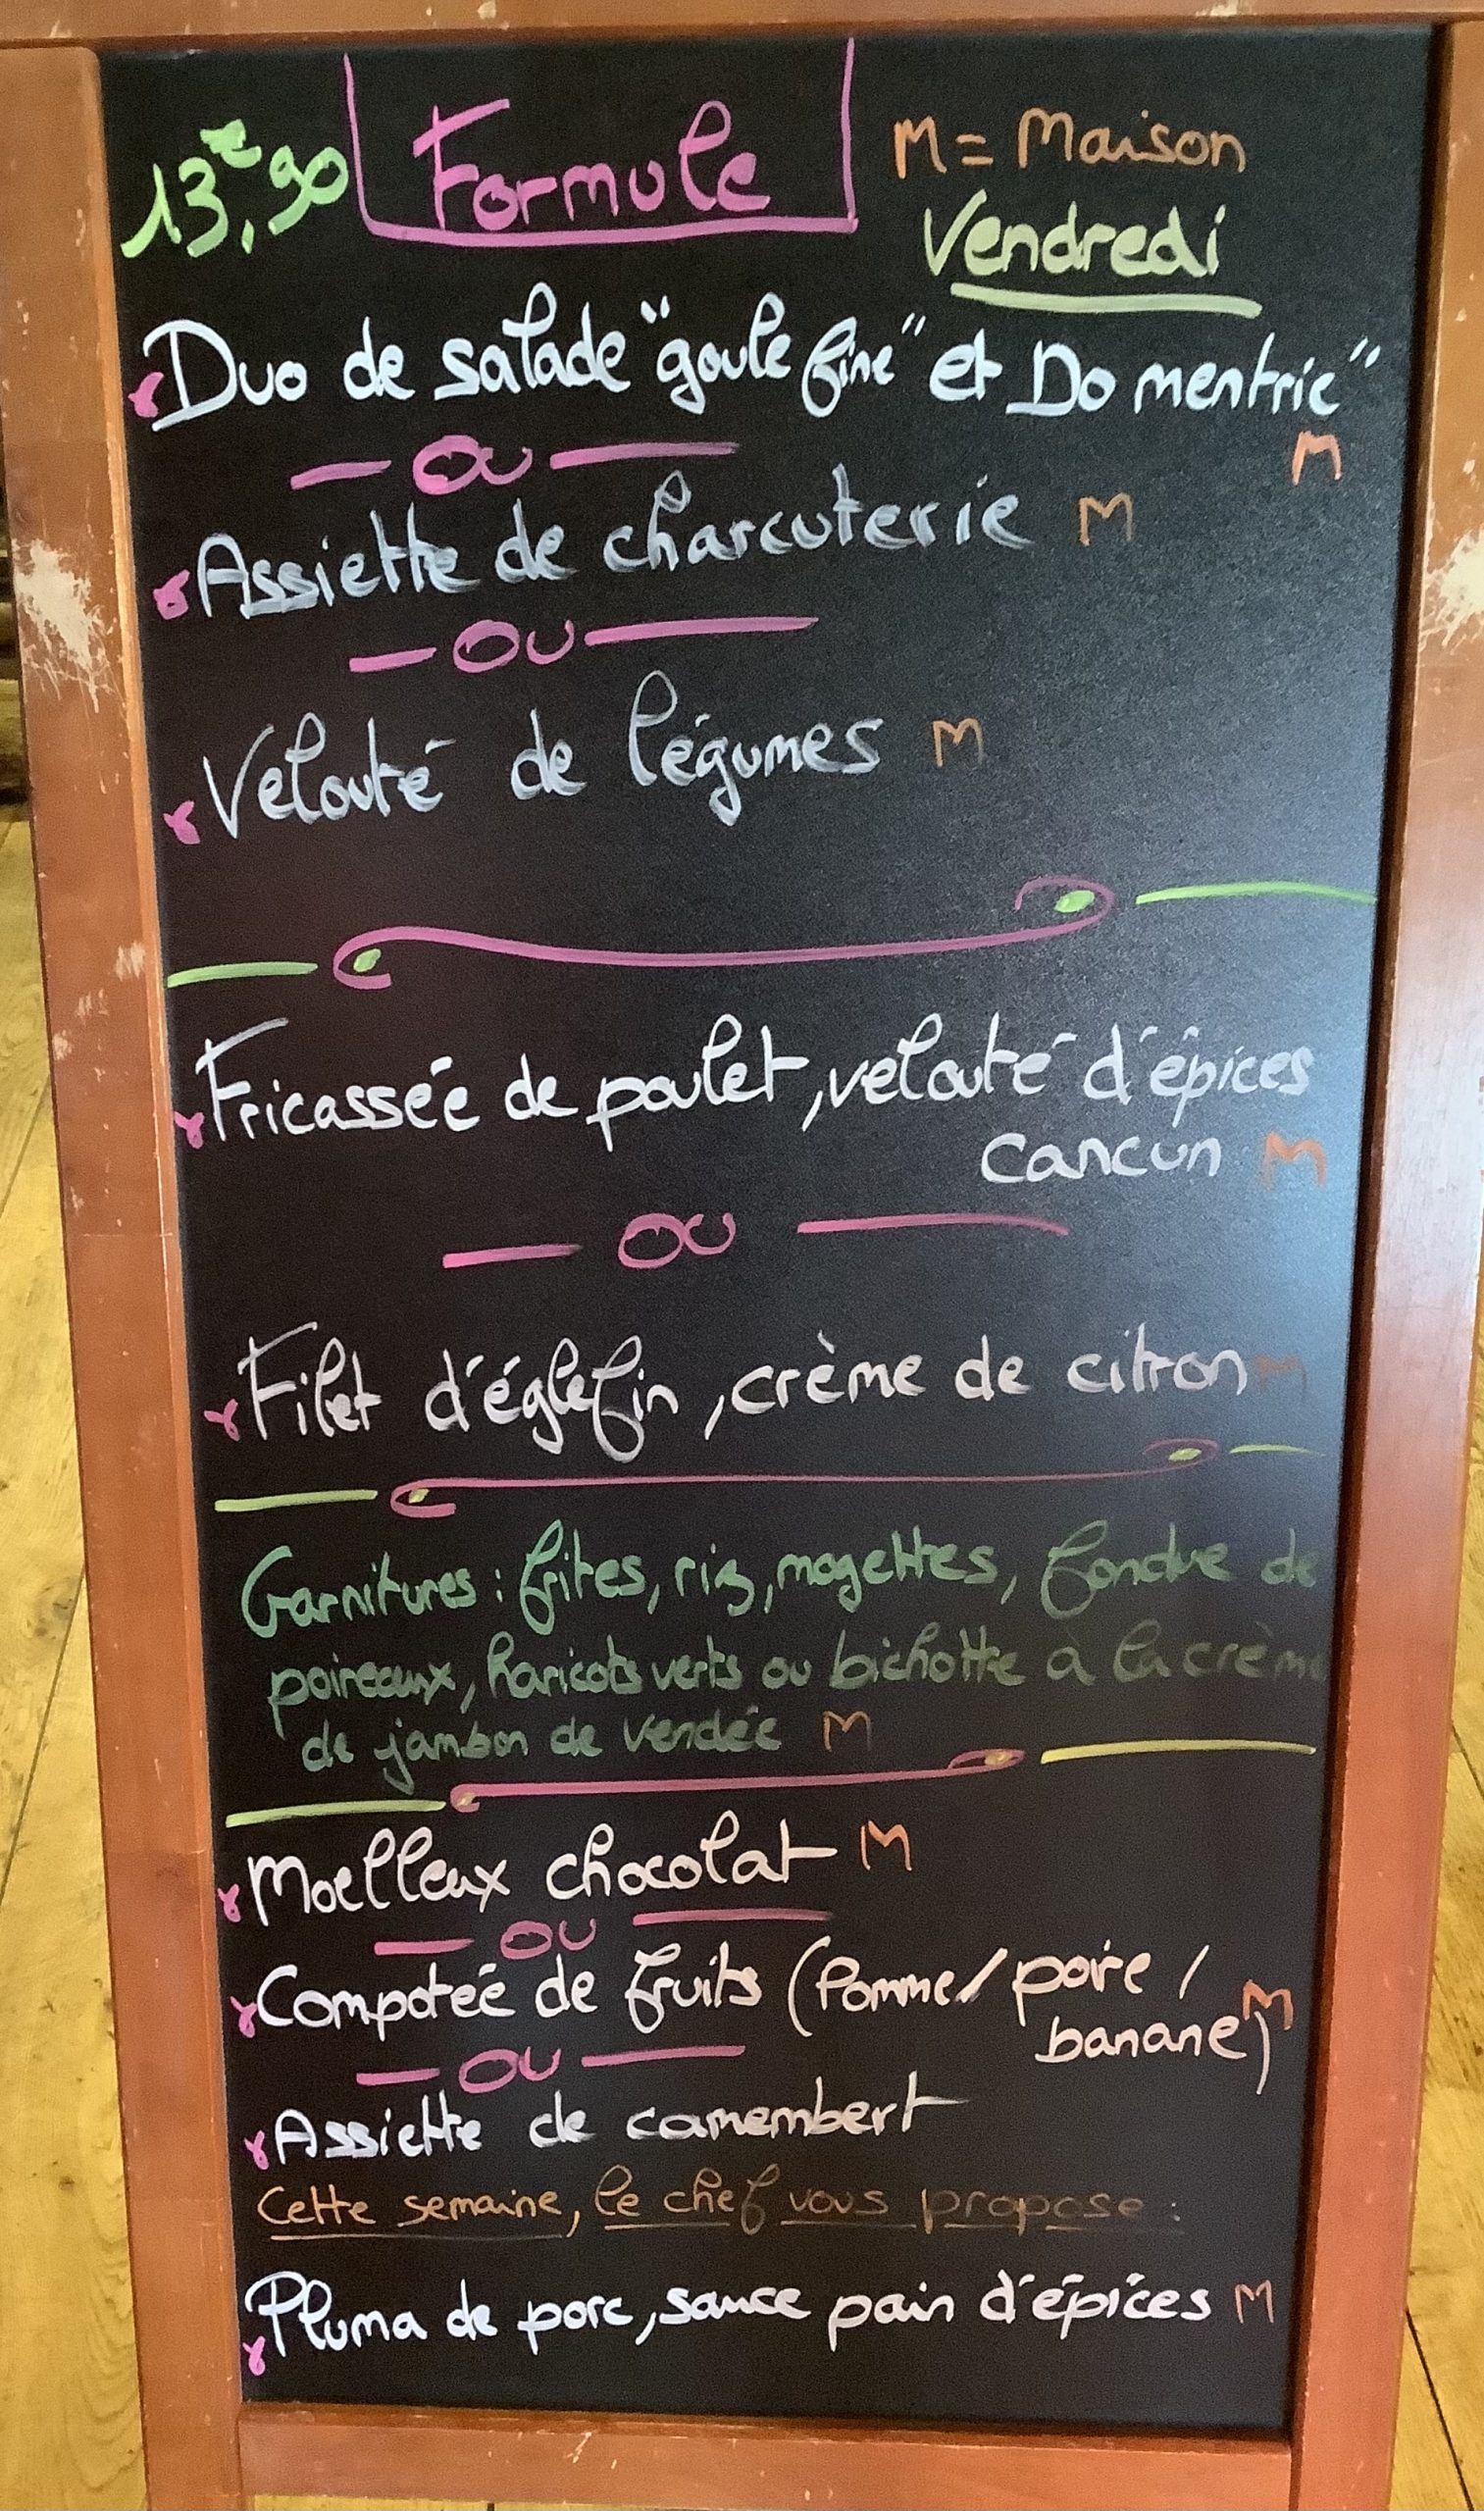 13,€90 Formule M = Maison
Vendredi
Duo de salade "goule fine" et Do mentrie"
M
— OU —
Assiette de charcuterie M
— OU —
Velouté de légumes M
Fricassée de poulet, velouté d'épices
Cancun M
— OU —
Filet d'églefin, crème de citron M
Garnitures : frites, riz, mogettes, fondue de
poireaux, haricots verts ou bichotte à la crème
de jambon de vendée M
Moelleux chocolat M
— OU —
Compotée de fruits (Pomme / poire /
banane) M
— OU —
Assiette de camembert
Cette semaine, le chef vous propose :
Pluma de porc, sauce pain d'épices M